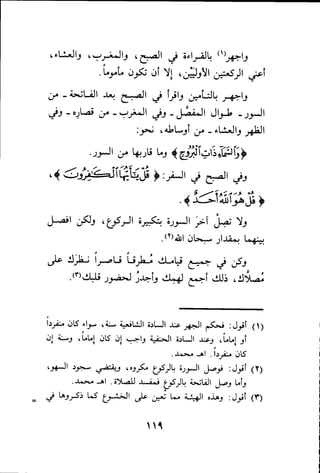 والجهر(١) بالقراءة في الصبح ، والمغرب ، والعشاء ،
أعني الركعتين الأوليين ، إلا أن يكون مأموماً .
والجهر بالتأمين واقرأ في الصبح بعد الفاتحة - من
السور - طوال المفصل ، وفي المغرب - قصاره ، وفي
الظهر والعشاء - من أوساطه ، نحو :
﴿ والشمس وضحاها ﴾ وما يقاربها من السور .
وفي الصبح في السفر : ﴿ قل يا أيها الكافرون ﴾ ،
﴿ قل هو الله أحد ﴾ .
ولا تصل آخر السورة بتكبيرة الركوع ، ولكن افصل
بينهما بمقدار سبحان الله(٢) .
وكن في جميع صلاتك مطرقاً قاصراً نظرك على
مصلاك ، فذلك أجمع للهمة وأجدر لحضور قلبك(٣) .
(١) أقول : وحكم الجهر عند السادة الشافعية سنة ، سواء كان منفرداً
أو إماماً ، وعند السادة الحنفية واجب إن كان إماماً ، وسنة إن
كان منفرداً . اهـ محمد .
(٢) أقول : ووصل السورة بالركوع مكروه ، وبعضهم جوز السور ،
وأما وصل الفاتحة بالركوع فمفسد للصلاة . اهـ محمد .
(٣) أقول : وهذه الهيئة مما تعين على الخشوع كما ذكرها في
١١٩